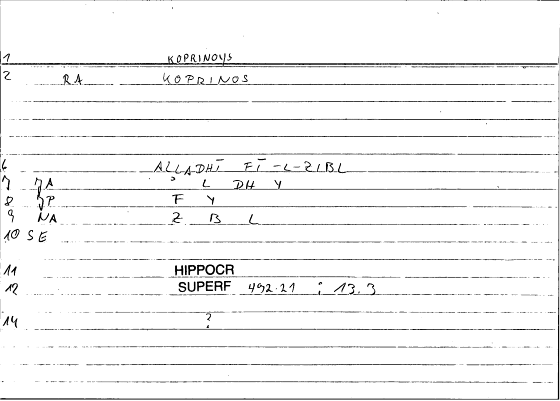 1 KOPRINOYS
2 RA KOPRINOS
6 ALLADHĪ FĪ-L-ZIBL
7 JA ʾ L DH Y
8 JP F Y
9 NA Z B L
10 SE
11 HIPPOCR
12 SUPERF 492.21 ; 13.3
14 ?